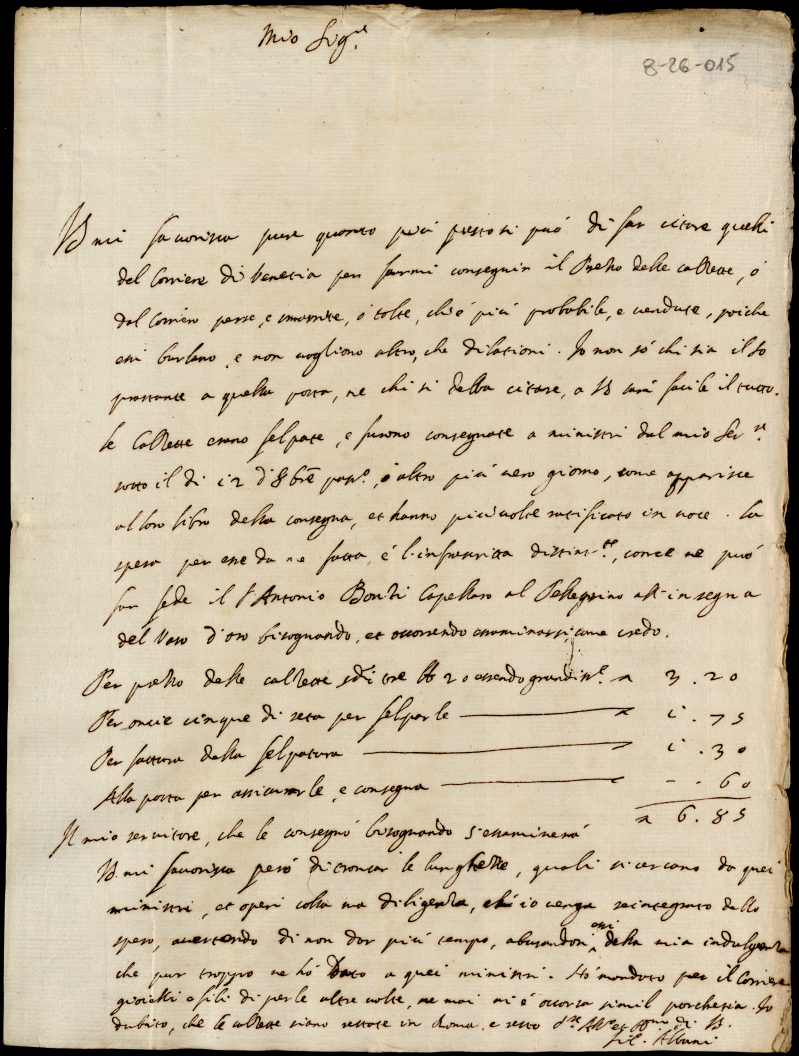 Mio Sig.re
8-26-015
V.S. mi favorisca pure quanto più presto si può di far citare quelli
del Corriere di Venetia per farmi conseguir il Prezzo delle calzette, ó
dal Corriero perse, e smarrite, ó tolte, ch'é più probabile, e vendute, poiche
essi burlano, e non vogliono altro, che dilationi. Io non só chi sia il so
prastante a quella posta, ne chi si debba citare, a V.S. sará facile il tutto.
le Calzette erano felpate, e furono consegnate a ministri dal mio Ser.re
sotto il di i2 d'8bre pass.o, ó altro più vero giorno, come apparisce
al loro libro della consegna, et hanno più volte ratificato in voce. la
spesa per esse da me fatta, é l'infrascritta, come ne può
far fede il S.r Antonio Capellaro al Pellegrino all'insegna
del Vaso d'oro bisognando, et occorrendo essaminarsi, come credo.
Per prezzo delle calzette 3 . 20
Per oncie cinque di seta per felparle i . 75
Per fattura della felpatura i . 30
Alla posta per assicurarle, e consegna - . 60
6 . 85
Il mio servitore, che le consegnó bisognando s'essaminerá
V.S. mi favorisca peró di troncar le lunghezze, quali si cercano da quei
ministri, et operi colla sua diligenza, ch'io venga reintegrato dello
speso, avertendo di non dar più tempo, abusandosi essi della mia indulgenza
che pur troppo ne hó Dato a quei ministri. Hó mandato per il Corriere
gioielli e fili di perle altre volte, ne mai mi é occorsa simil porcheria. Io
dubito, che le calzette siano restate in Roma, e resto di V.S.
Albani